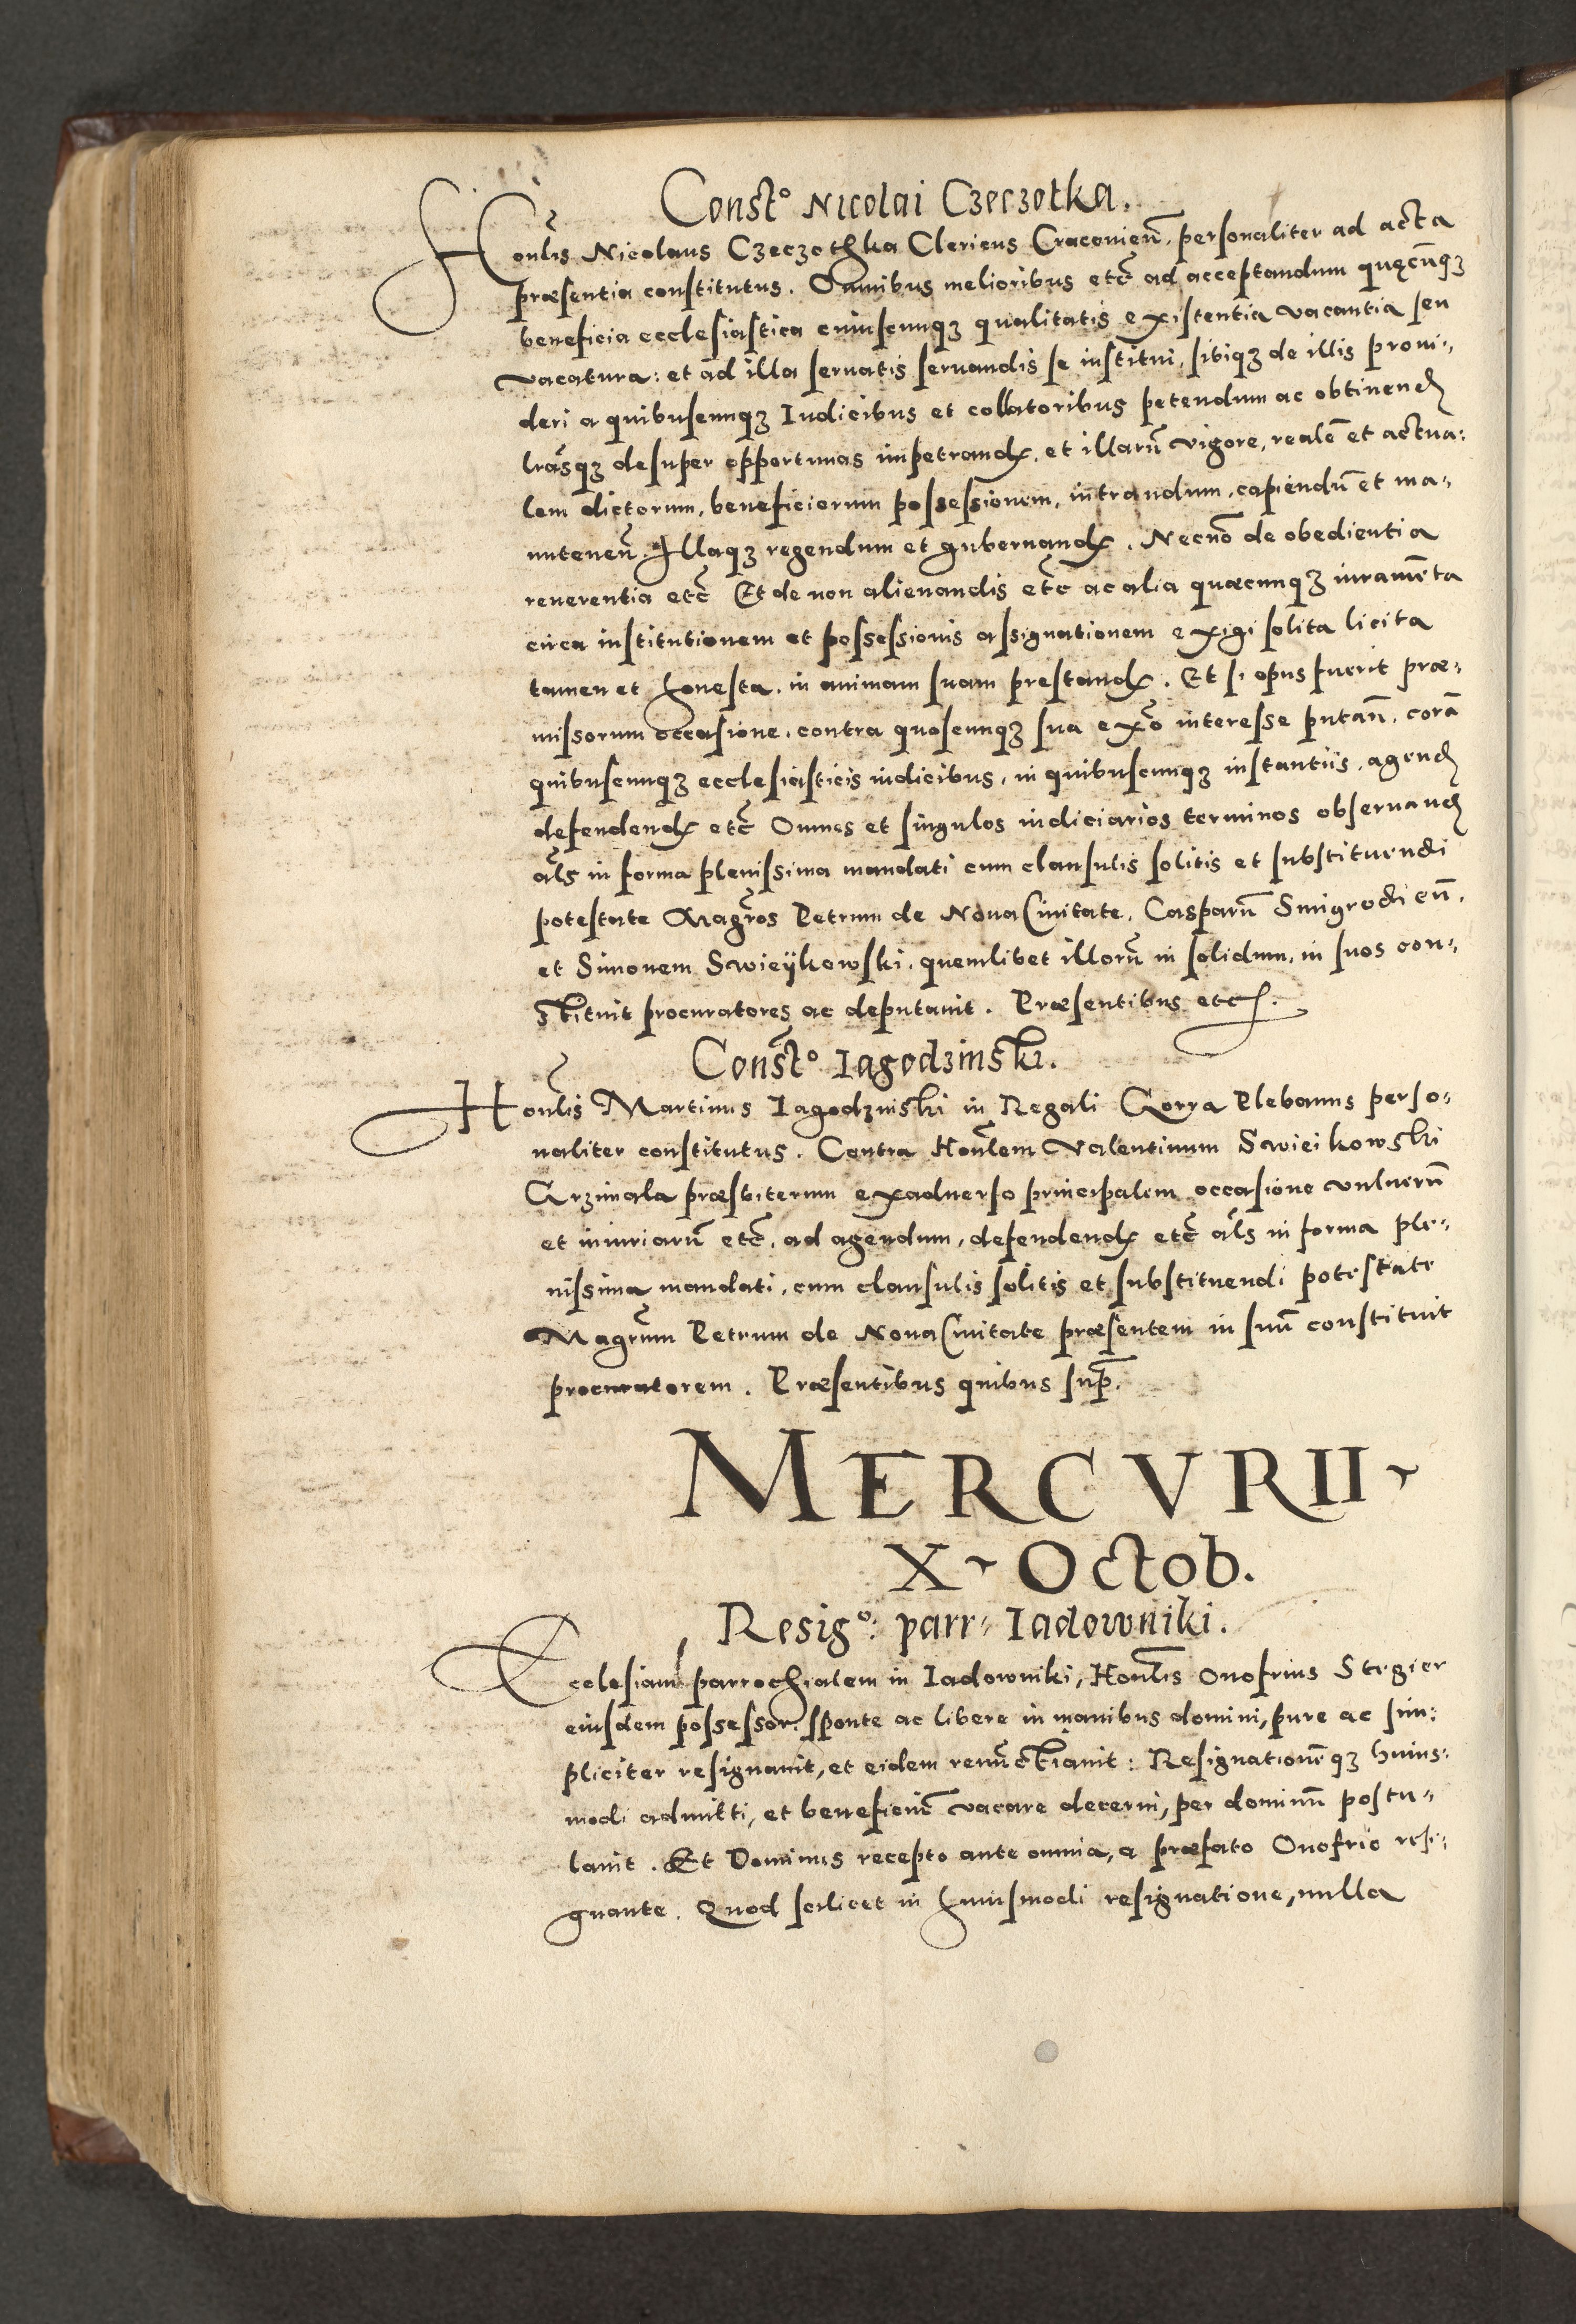 Const° Nicolai Czeczotka.
Honlis Nicolaus Czeczothka Clericus Cracovien̄. personaliter ad acta
præsentia constitutus. Omnibus melioribus etc̄ ad acceptandum quęcūqꝫ
beneficia ecclesiastica cuiuscunqꝫ qualitatis existentia vacantia seu
vacatura: et ad illa servatis servandis se institui, sibiqꝫ de illis provi-,
deri a quibuscunqꝫ Iudicibus et collatoribus petendum ac obtinend
lrāsqꝫ desuper opportunas impetrand, et illarū vigore, realē et actua:
lem dictorum, beneficiorum possessionem, intrandum, capiendū et ma-,
nuteneñ. Illaqꝫ regendum et gubernand. Necnō de obedientia
reverentia etc̄ Et de non alienandis etc̄ ac alia quæcunqꝫ iuramēta
circa institutionem et possessionis assignationem exigi solita licita
tamen et honesta, in animam suam prestand. Et si opus fuerit præ-,
missorum occasione, contra quoscunqꝫ sua ex̄o interesse putañ, corā
quibuscunqꝫ ecclesiasticis iudicibus, in quibuscunqꝫ instantiis, agend
defendend etc̄ Omnes et singulos iudiciarios terminos observand
āls in forma plenissima mandati cum clausulis solitis et substituendi
potestate Magr̄os Petrum de Nova Civitate, Casparū Smigrodien̄.
et Simonem Swieÿkowski, quemlibet illorū in solidum, in suos con-,
stituit procuratores ac deputavit. Præsentibus etc.
Const° Iagodzinski.
Honlis Martinus Iagodzinski in Regali Gorra Plebanus perso-,
naliter constitutus. Contra Honlem Valentinum Swieikowski
Grzimala præsbiterum exadverso principalem occasione vulnerū
et iniuriarū etc̄, ad agendum, defendend etc̄ āls in forma ple-,
nissima mandati, cum clausulis solitis et substituendi potestate
Magrum Petrum de Nova Civitate præsentem in suū constituit
procuratorem. Præsentibus quibus sup̄.
MERCVRII
X Octob.
Resig°: parr: Iadowniki.
Ecclesiam parrochialem in Iadowniki, Honlis Onofrius Stegier
eiusdem possessor, sponte ac libere in manibus domini, pure ac sim:
pliciter resignavit, et eidem renūctiavit: Resignationēqꝫ huius-
modi admitti, et beneficiū vacare decerni, per dominū postu-,
lavit. Et Dominus recepto ante omnia, a præfato Onofrio resi-,
gnante. Quod scilicet in huiusmodi resignatione, nulla